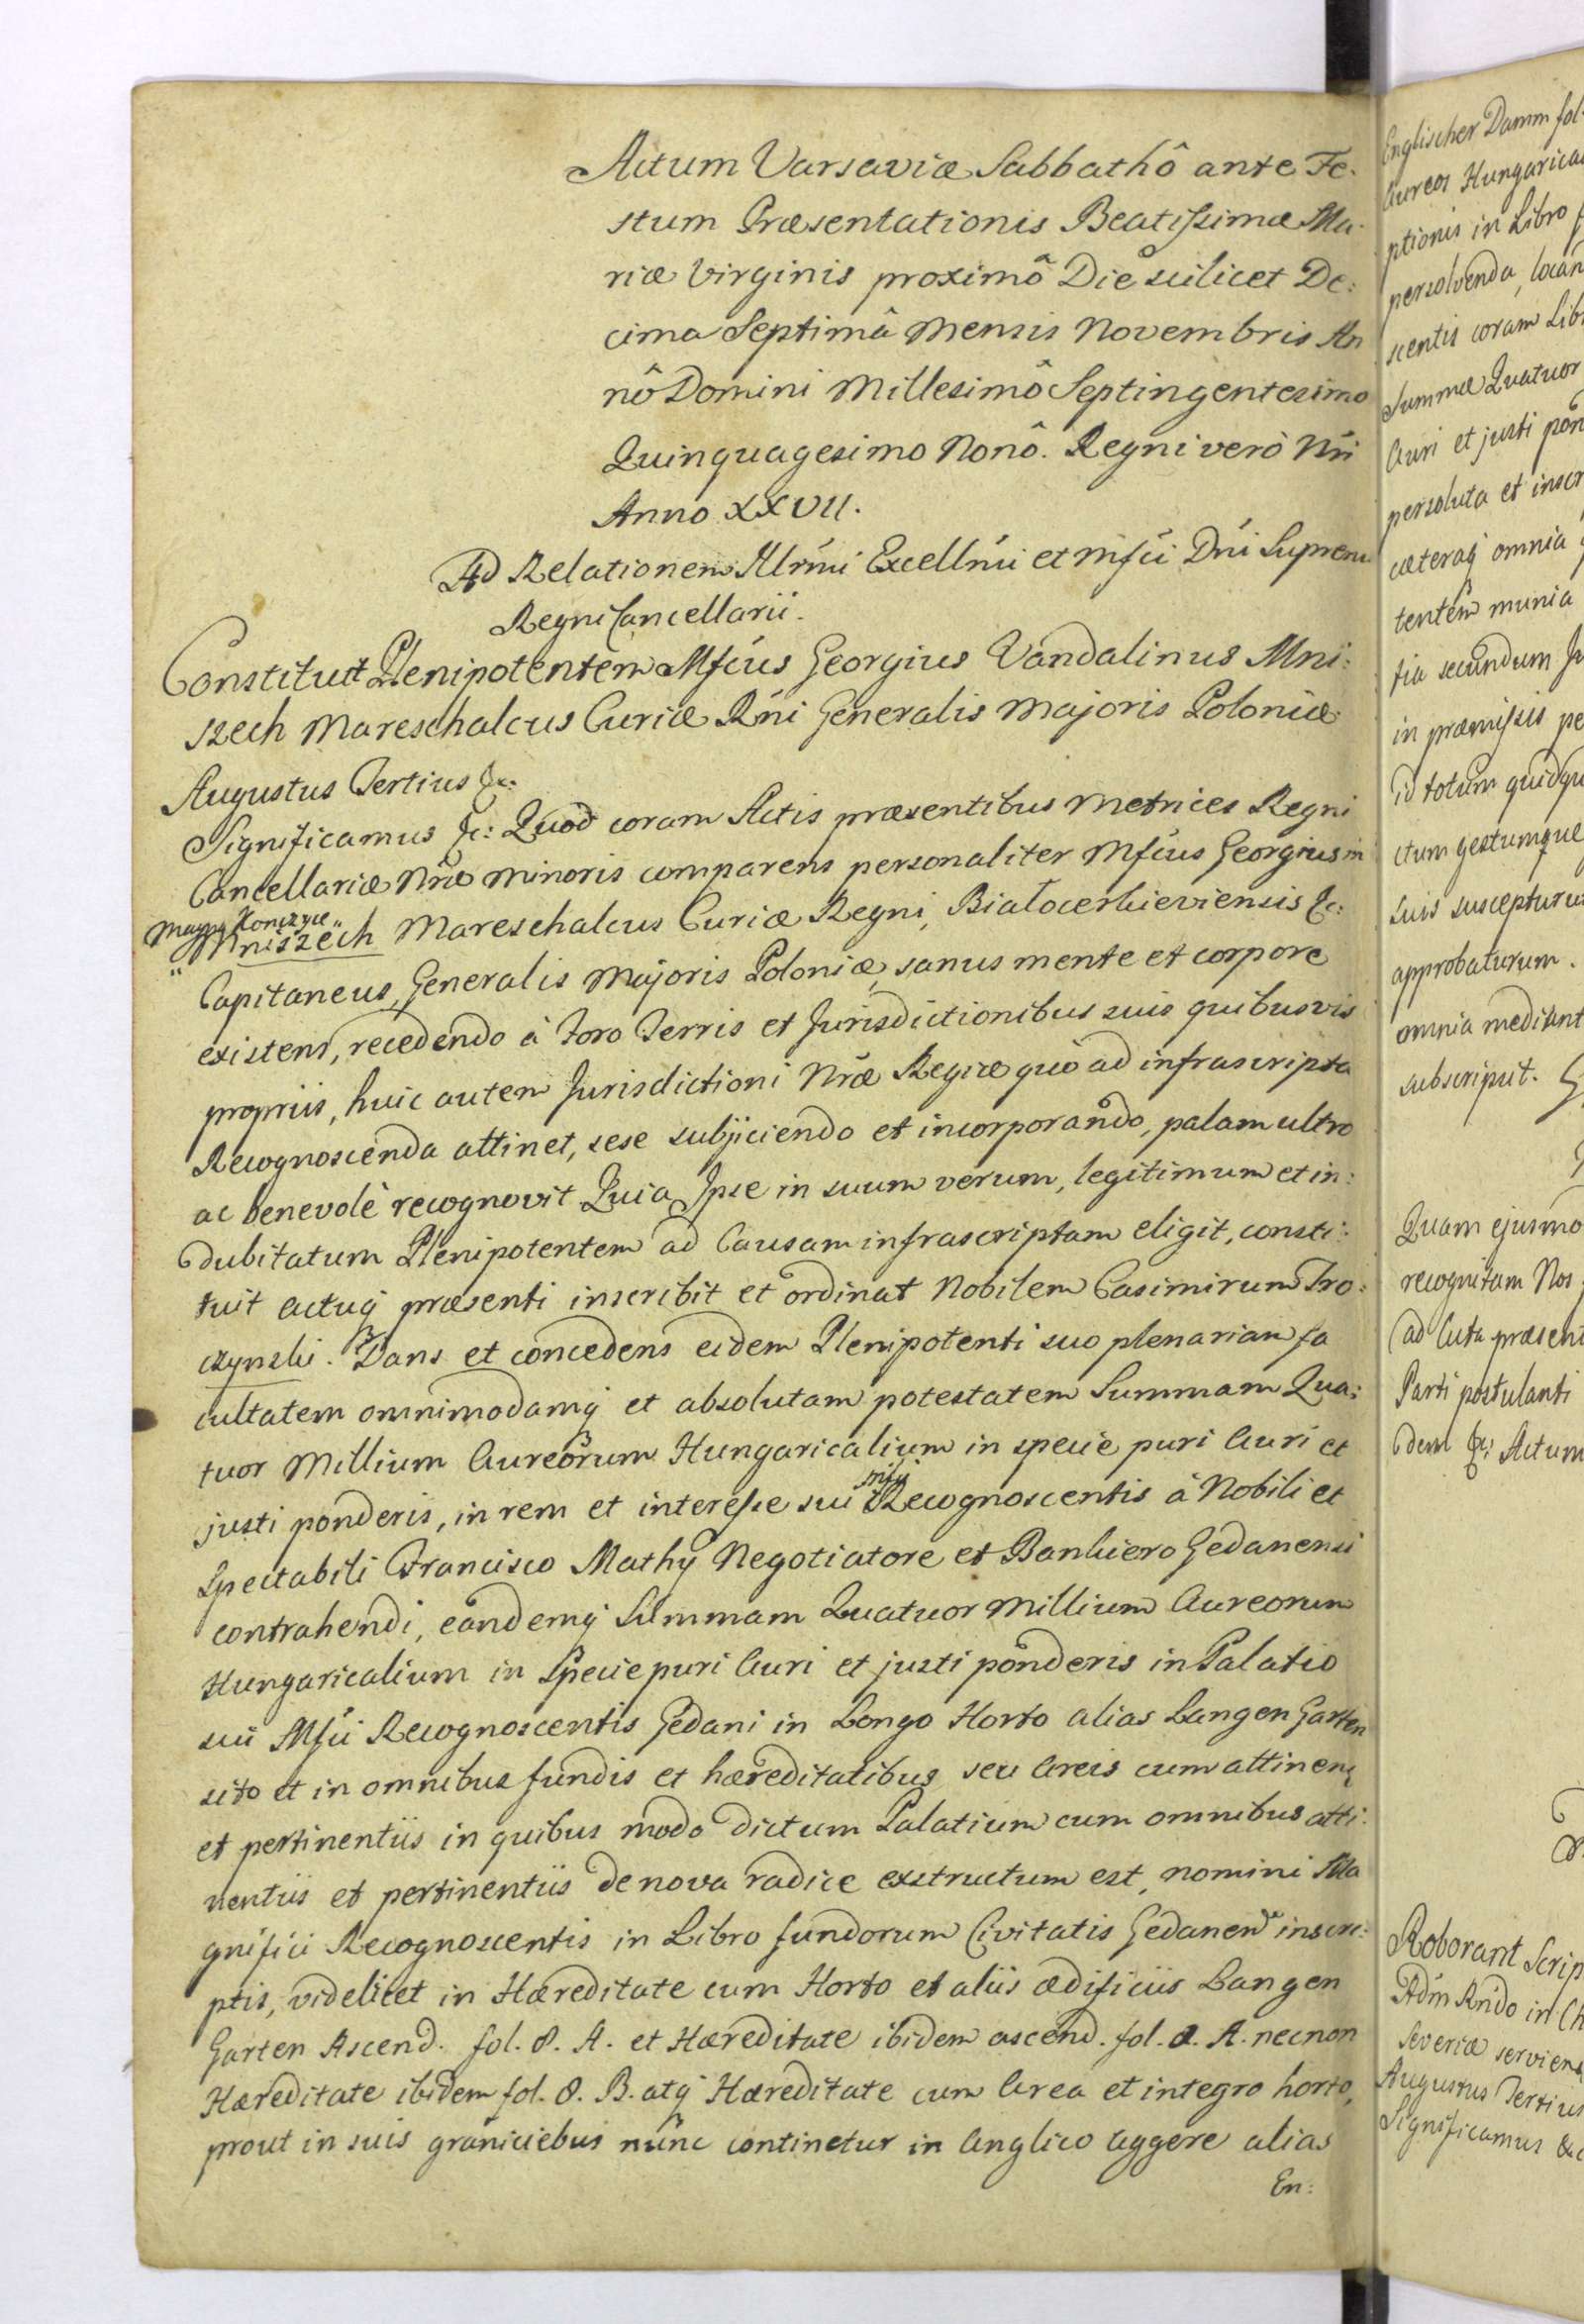 Actum Varsaviæ Sabbathô ante Fe:
stum Præsentationis Beatissimæ Ma:
riæ Virginis proximô Die scilicet De:
cima Septimâ Mensis Novembris An
nô Domini Millesimô Septingentesimo
Quinquagesimo Nonô. Regni verò Nri
Anno XXVII.
Ad Relationem Illrmi Excellmi et Mfci Dni Supremi
Regni Cancellarii.
Constituit Plenipotentem Mfcus Georgius Vandalinus Mni:
szech Mareschalcus Curiæ Rni Generalis Majoris Poloniæ
Augustus Tertius &c:
Significamus &c: Quod coram Actis præsentibus Metrices Regni
Cancellariæ Nræ Minoris comparens personaliter Mfcus Georgius in
Magna Konczyce
"Mniszech Mareschalcus Curiæ Regni, Białocerkieviensis &c:
Capitaneus, Generalis Majoris Poloniæ, sanus mente et corpore
existens, recedendo à Foro Terris et Jurisdictionibus suis quibusvis
propriis, huic autem Jurisdictioni Nræ Regiæ quò ad infrascripta
Recognoscenda attinet, sese subjiciendo et incorporando, palam ultro
ac benevolè recognovit Quia Ipse in suum verum, legitimum et in:
dubitatum Plenipotentem ad Causam infrascriptam eligit, consti:
tuit actuq præsenti inscribit et ordinat Nobilem Casimirum Tro:
czynski. Dans et concedens eidem Plenipotenti suo plenariam fa
cultatem omnimodamq et absolutam potestatem Summam Qua:
tuor Millium Aureorum Hungaricalium in specie puri Auri et
justi ponderis, in rem et interesse sui Mfci Recognoscentis à Nobili et
Spectabili Francisco Mathy Negotiatore et Bankiero Gedanensi
contrahendi, eandemq Summam Quatuor Millium Aureorum
Hungaricalium in Specie puri Auri et justi ponderis in Palatio
sui Mfci Recognoscentis Gedani in Longo Horto alias Langen Garten
sito et in omnibus fundis et hæreditatibus seu Areis cum attinen
et pertinentiis in quibus modo dictum Palatium cum omnibus atti:
nentiis et pertinentiis de nova radice exstructum est, nomini Ma
gnifici Recognoscentis in Libro fundorum Civitatis Gedanen inscri:
ptis, videlicet in Hæreditate cum Horto et aliis ædificiis Langen
Garten Ascend. fol. 8. A. et Hæreditate ibidem ascend. fol. 8. A. necnon
Hæreditate ibidem fol. 8. B. atq Hæreditate cum Area et integro horto,
prout in suis graniciebus nunc continetur in Anglico Aggere alias
En:
Englischer Damm fol.
Aureos Hungarica
ptionis in Libro
persolvenda, locan
scentis coram Lib
Summæ Quatuor
Auri et justi pon
persoluta et inscr
cæteraq omnia
tentem munia
tia secundum Ju
in præmissis pe
id totum quidqu
ctum gestumque
suis suscepturu
approbaturum.
omnia medi
subscripsit.
Quam ejusmo
recognitam Nos
ad Acta præsent
Parti postulanti
dem &c: Actum
Roborant Scrip
Adm Rndo in Ch
Severiæ serviens
Augustus Tertius
Significamus &c